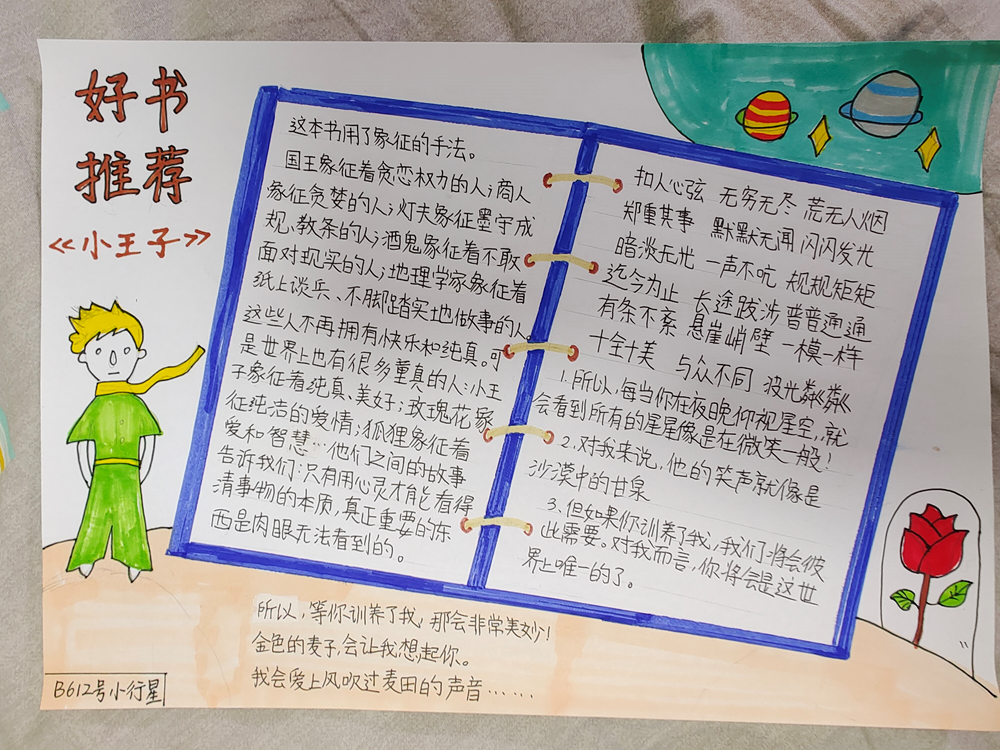 好书
推荐
《小王子》
这本书用了象征的手法。
国王象征着贪恋权力的人；商人
象征贪婪的人；灯夫象征墨守成
规、教条的人；酒鬼象征着不敢
面对现实的人；地理学家象征着
纸上谈兵、不脚踏实地做事的人。
这些人不再拥有快乐和纯真。可
是世界上也有很多童真的人：小王
子象征着纯真、美好；玫瑰花象
征纯洁的爱情；狐狸象征着
爱和智慧…他们之间的故事
告诉我们：只有用心灵才能看得
清事物的本质，真正重要的东
西是肉眼无法看到的。
扣人心弦 无穷无尽 荒无人烟
郑重其事 默默无闻 闪闪发光
暗淡无光 一声不吭 规规矩矩
迄今为止 长途跋涉 普普通通
有条不紊 悬崖峭壁 一模一样
十全十美 与众不同 波光粼粼
1.所以，每当你在夜晚仰视星空，就
会看到所有的星星像是在微笑一般！
2.对我来说，他的笑声就像是
沙漠中的甘泉
3.但如果你训养了我，我们将会彼
此需要。对我而言，你将会是这世
界上唯一的了。
所以，等你训养了我，那会非常美妙！
金色的麦子，会让我想起你。
我会爱上风吹过麦田的声音……
B612号小行星